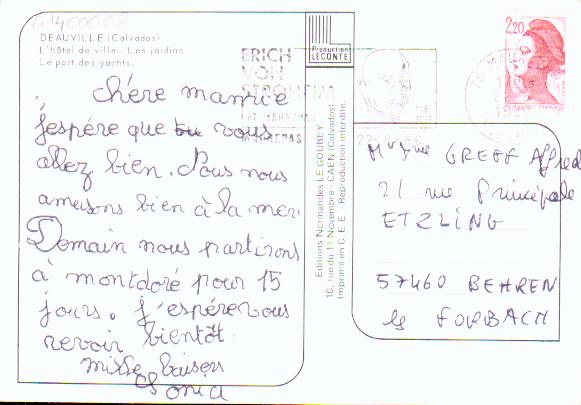 DEAUVILLE (Calvados)
L'hôtel de ville - Les jardins
Le port des yachts.
Production
LECONTE
ERICH
VON
STROHEIM
2,20
chère mamie
j'espére que tu vous
allez bien. Nous nous
amusons bien à la mer.
Demain nous partirons
à montdoré pour 15
jours. j'espére vous
revoir bientôt.
mille baisers
Sonia
Editions Normandes LE GOUBEY
10, rue du 11 Novembre - CAEN (Calvados)
Imprimé en C.E.E. - Reproduction interdite.
Mr Mme GREFF Alfred
21 rue Principale
ETZLING
57460 BEHREN
ls FORBACH